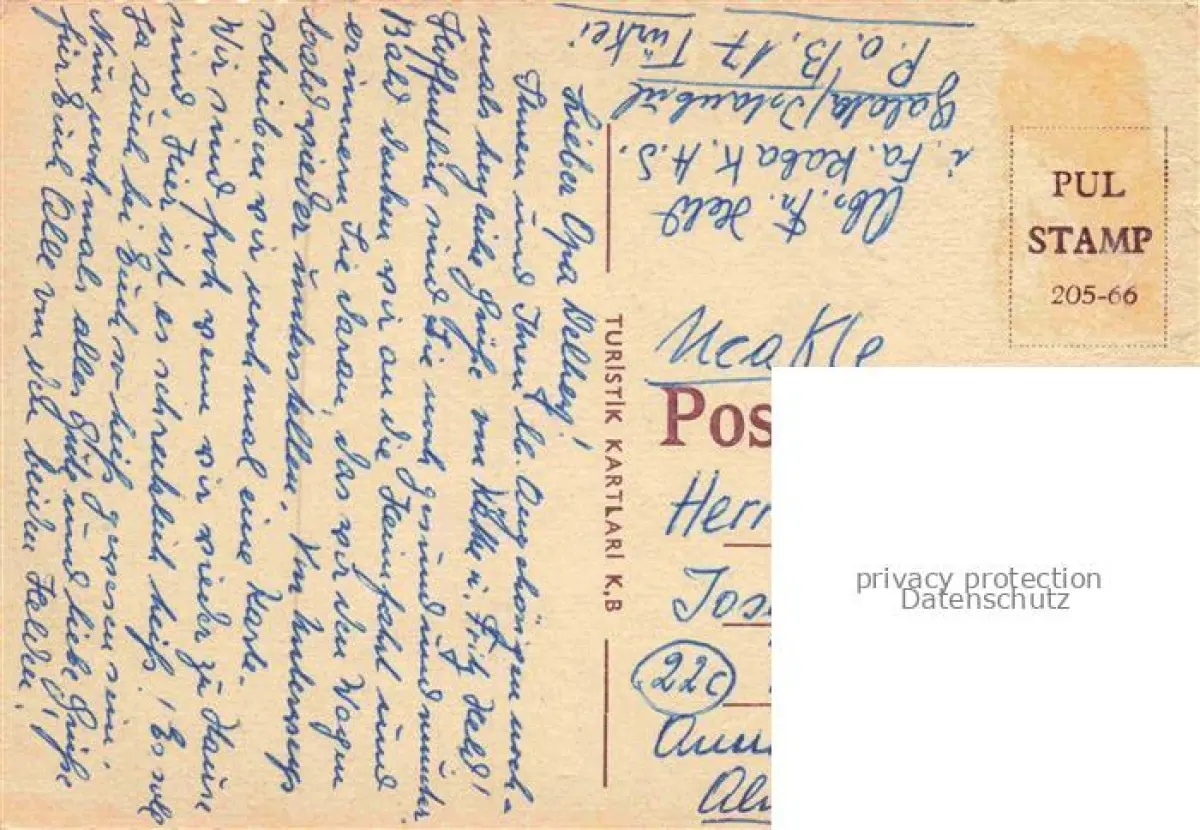 Lieber Opa Delhey!
Ihnen und Ihren lb. Angehörigen noch-
mals herzliche Grüße von Käthe u. Fritz Held!
Hoffentlich sind Sie noch gesund und munter.
Bald denken wir an die Heimfahrt und
erinnern Sie daran, das wir den Wagen
bald wieder unterstellen. Von unterwegs
schreiben wir noch mal eine Karte.
Wir sind froh wenn wir wieder zu Hause
sind. Hier ist es schrecklich heiß! Es soll
ja auch bei Euch so heiß gewesen sein.
Nun nochmals alles Gute und liebe Grüße
für Euch Alle von den beiden Helden!
TURİSTİK KARTLARI K.B
Abs. Fr. Held
i. Fa. Raba K. H. S.
Galata/Istanbul
P.o.B. 17 Türkei
PUL
STAMP
205-66
Pos
Herr
Jos
22c
privacy protection
Datenschutz